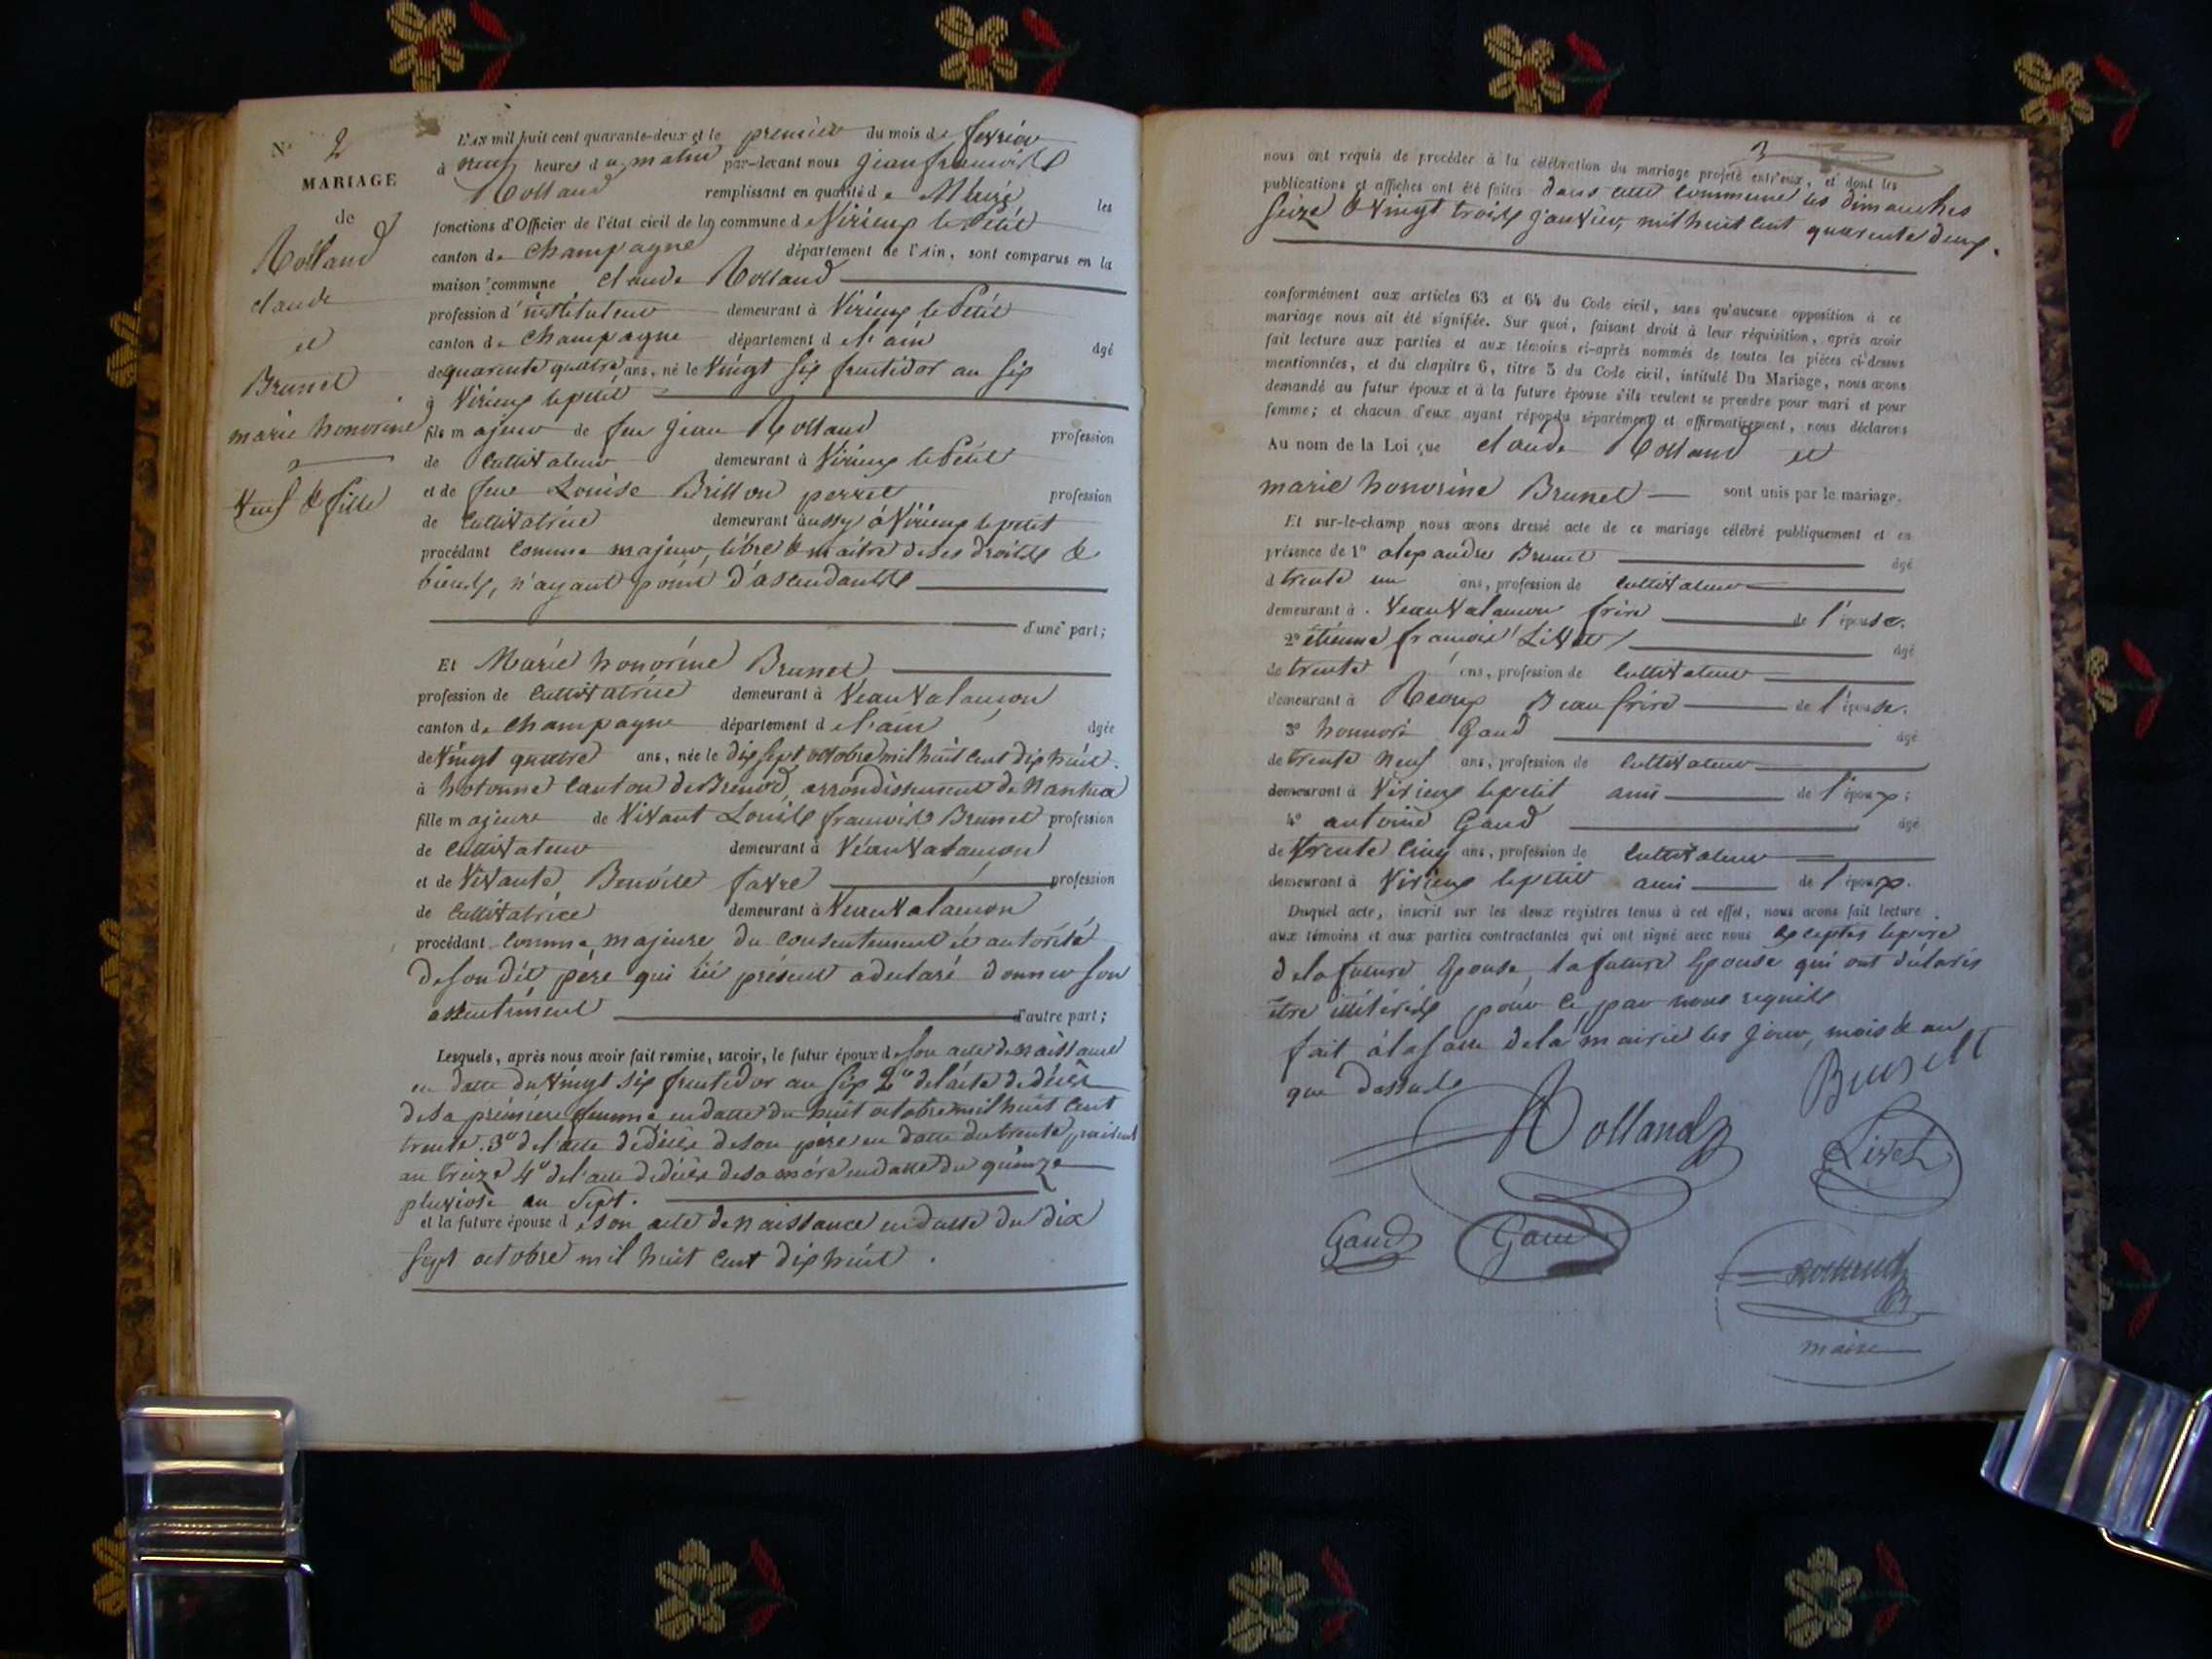 N° 2
MARIAGE
de
Rolland
claude
et
Brunet
marie honorine
Veuf & fille
L'AN mil huit cent quarante-deux et le premier du mois de fevrier
à neuf heures du matin par-devant nous jean françois
Rolland remplissant en qualité de Maire les
fonctions d'Officier de l'état civil de la commune de Virieux le Petit
canton de Champagne département de l'Ain, sont comparus en la
maison commune claude Rolland
profession d'instituteur demeurant à Virieux le Petit
canton de Champagne département de l'ain âgé
de quarente quatre ans, né le Vingt six fructidor an six
à Virieux le petit
fils majeur de feu jean Rolland profession
de Cultivateur demeurant à Virieux le Petit
et de feue Louise Brillon perret profession
de Cultivatrice demeurant aussy à Virieux le petit
procédant comme majeur, libre & maitre de ses droits &
biens, n'ayant point d'ascendants
d'une part;
Et Marie honorine Brunet
profession de Cultivatrice demeurant à Veauvalamon
canton de Champagne département de l'ain âgée
de Vingt quatre ans, née le dix sept octobre mil huit cent dix huit
à hotonne Canton de Brenod, arrondissement de Nantua
fille majeure de Vivant Louis françois Brunet profession
de Cultivateur demeurant à Veauvalamon
et de Vivante Benoite favre profession
de Cultivatrice demeurant à Veauvalamon
procédant comme majeure du consentement et autorité
de son dit père qui ici présent a declaré donner son
assentiment d'autre part;
Lesquels, après nous avoir fait remise, savoir, le futur époux de son acte de naissance
en datte du Vingt six fructidor an six 2° de l'acte de décès
de sa première femme en datte du huit octobre mil huit cent
trente. 3° de l'acte de décès de son père en datte du trente prairial
an treize 4° de l'acte de décès de sa mère en datte du quinze
pluviose an Sept.
et la future épouse de son acte de naissance en datte du dix
sept octobre mil huit cent dix huit.
3
nous ont requis de procéder à la célébration du mariage projeté entr'eux, et dont les
publications et affiches ont été faites dans cette commune les dimanches
seize & Vingt trois janvier, mil huit cent quarente deux.
conformément aux articles 63 et 64 du Code civil, sans qu'aucune opposition à ce
mariage nous ait été signifiée. Sur quoi, faisant droit à leur réquisition, après avoir
fait lecture aux parties et aux témoins ci-après nommés de toutes les pièces ci-dessus
mentionnées, et du chapitre 6, titre 5 du Code civil, intitulé Du Mariage, nous avons
demandé au futur époux et à la future épouse s'ils veulent se prendre pour mari et pour
femme; et chacun d'eux ayant répondu séparément et affirmativement, nous déclarons
Au nom de la Loi que claude Rolland et
marie honorine Brunet sont unis par le mariage.
Et sur-le-champ nous avons dressé acte de ce mariage célébré publiquement et en
présence de 1° alexandre Brunet âgé
de trente un ans, profession de Cultivateur
demeurant à Veauvalamon frère de l'épouse.
2° étienne françois Livet âgé
de trente ans, profession de Cultivateur
demeurant à Recoux Beau frère de l'épouse.
3° honnoré Gaud âgé
de trente neuf ans, profession de Cultivateur
demeurant à Virieux le petit ami de l'époux;
4° antoine Gaud âgé
de trente cinq ans, profession de Cultivateur
demeurant à Virieux le petit ami de l'époux.
Duquel acte, inscrit sur les deux registres tenus à cet effet, nous avons fait lecture
aux témoins et aux parties contractantes qui ont signé avec nous exceptés le père
de la future Epouse, la future Epouse qui ont déclarés
être illitérés pour ce par nous requis
fait à la salle de la mairie les jour, mois & an
que dessus
Rolland
Brunet
Livet
Gaud
Gaud
Rolland
maire